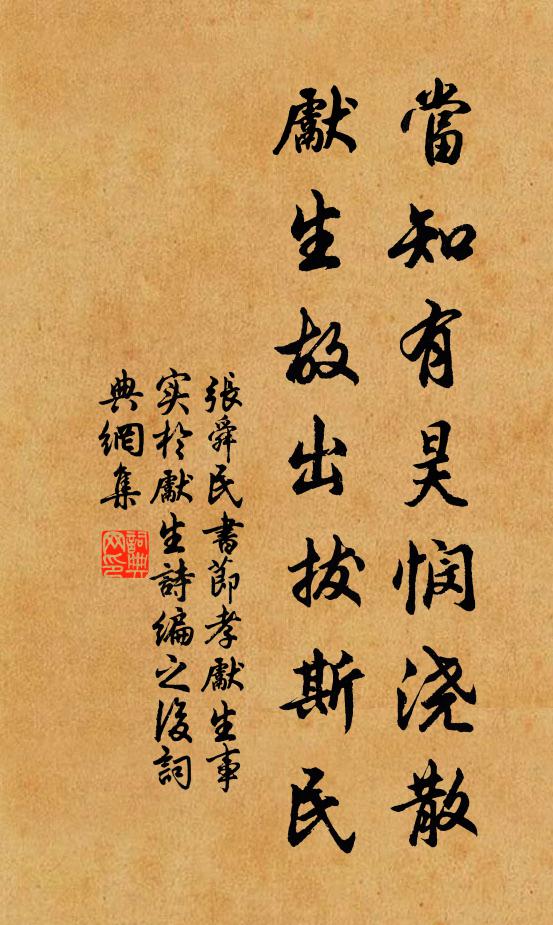 當知有昊悯浇散
獻生故出拔斯民
張舜民書節孝獻生事
实於獻生詩編之後詞
典網集
詞典网印